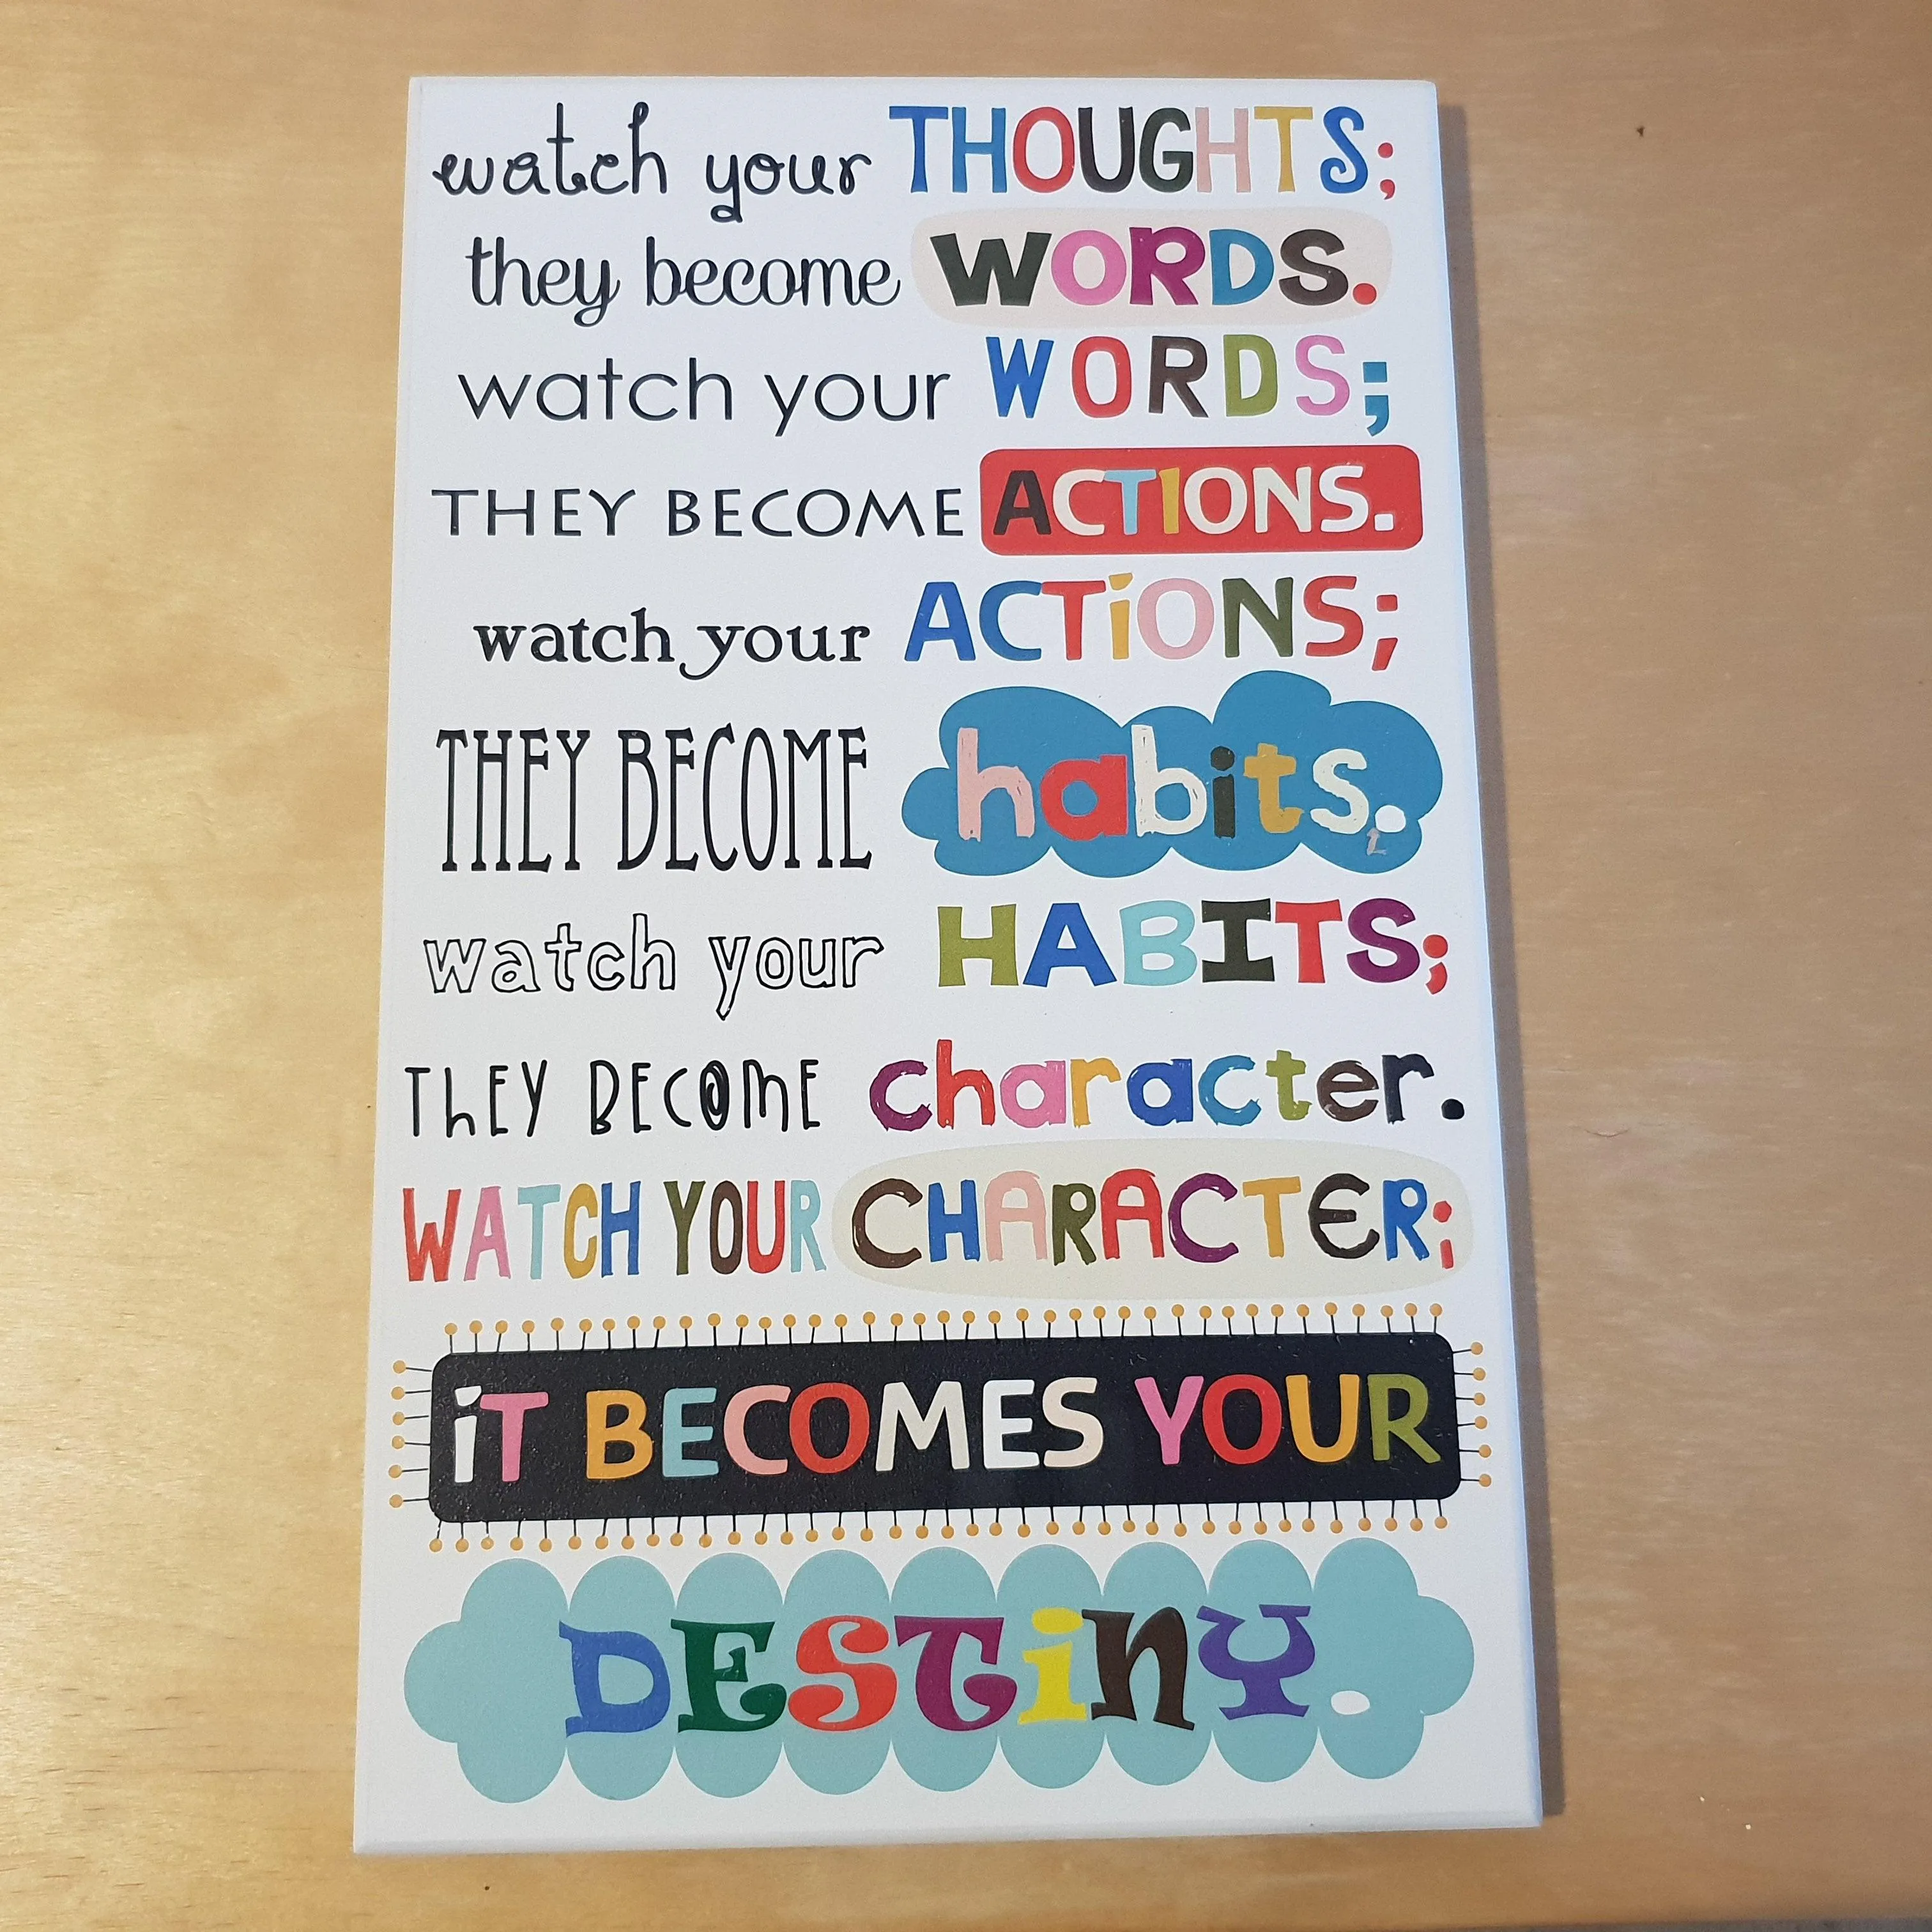 watch your THOUGHTS;
they become WORDS.
watch your WORDS;
THEY BECOME ACTIONS.
watch your ACTiONS;
THEY BECOME habits.
watch your HABITS;
ThEY BECOmE character.
WATCH YOUR CHARACTER;
iT BECOMES YOUR
DESTiNY.